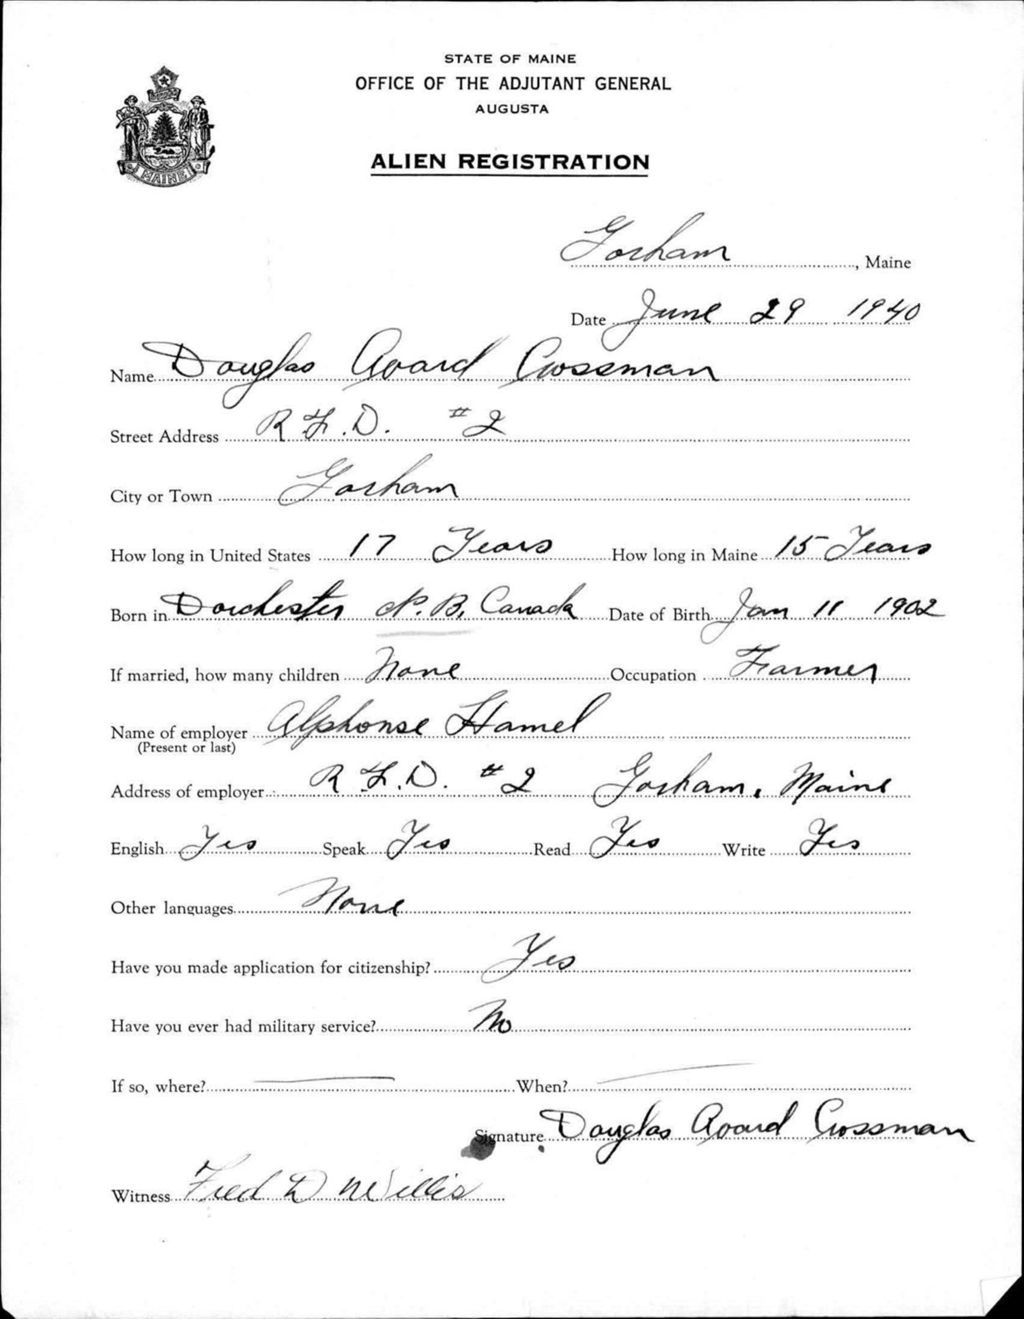 STATE OF MAINE
OFFICE OF THE ADJUTANT GENERAL
AUGUSTA
MAINE
ALIEN REGISTRATION
Gorham, Maine
Date June 29 1940
Name Douglas Avard Crossman
Street Address R.F.D. #2
City or Town Gorham
How long in United States 17 Years How long in Maine 15 Years
Born in Dorchester N.B, Canada Date of Birth Jan 11 1902
If married, how many children None Occupation Farmer
Name of employer Alphonse Hamel
(Present or last)
Address of employer R.F.D. #2 Gorham, Maine
English Yes Speak Yes Read Yes Write Yes
Other languages None
Have you made application for citizenship? Yes
Have you ever had military service? No
If so, where? When?
Signature Douglas Avard Crossman
Witness Fred D Willis